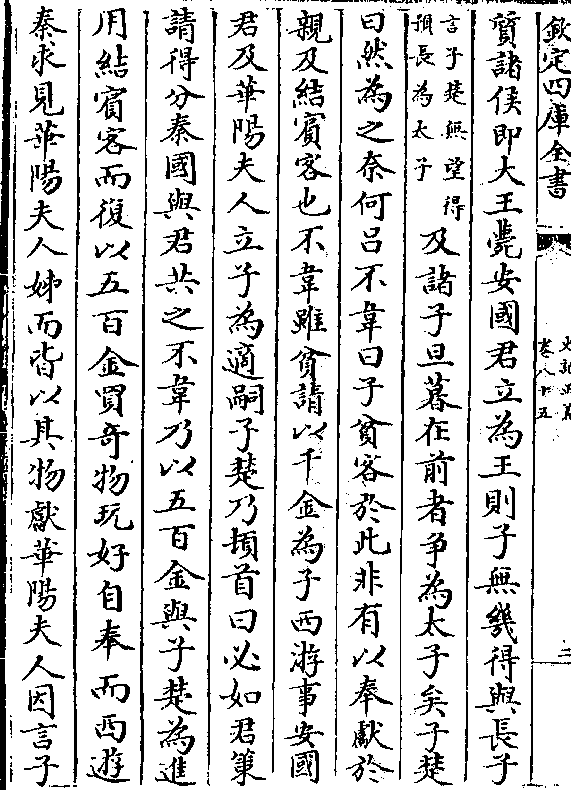 欽定四庫全書
卷八十五
三
質諸侯即大王薨安國君立為王則子無幾得與長子
言子楚無望得預長為太子及諸子旦暮在前者争為太子矣子楚
曰然為之奈何呂不韋曰子貧客於此非有以奉獻於
親及結賓客也不韋雖貧請以千金為子西游事安國
君及華陽夫人立子為適嗣子楚乃頓首曰必如君策
請得分秦國與君共之不韋乃以五百金與子楚為進
用結賓客而復以五百金買奇物玩好自奉而西遊
秦求見華陽夫人姊而皆以其物獻華陽夫人因言子